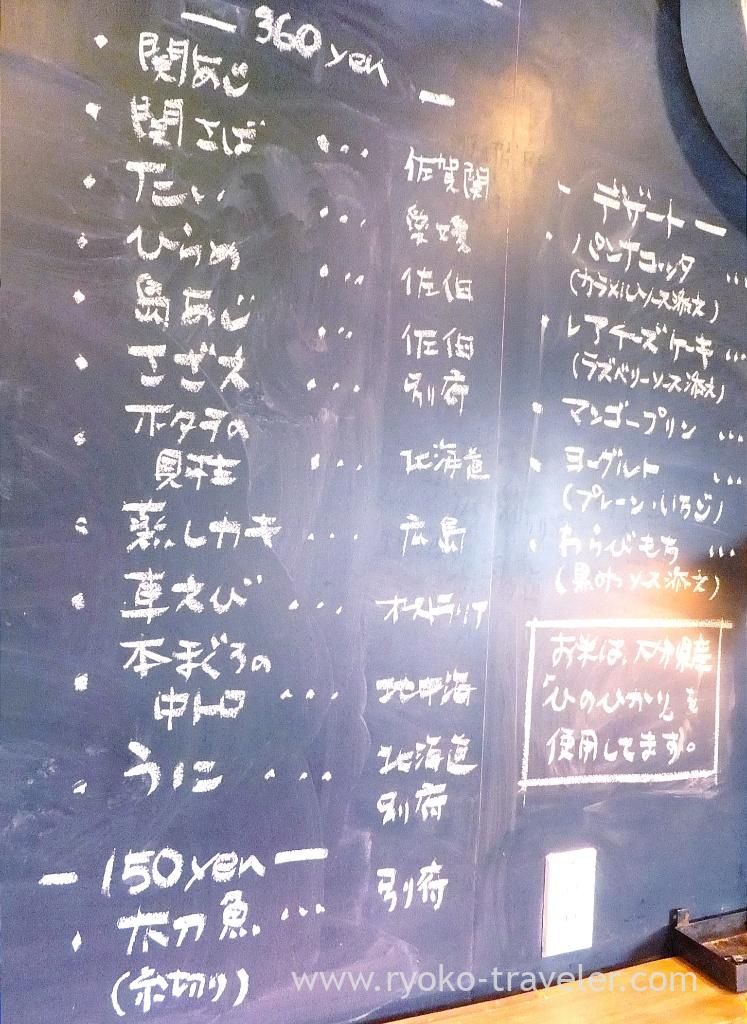 — 360 yen —
・関あじ
・関さば ... 佐賀関
・たい ... 愛媛
・ひらめ ... 佐伯
・島あじ ... 佐伯
・さざえ ... 別府
・ホタテの
貝柱 ... 北海道
・蒸しカキ ... 広島
・車えび ... オーストラリア
・本まぐろの
中トロ ... 地中海
・うに ... 北海道
別府
— 150 yen —
・太刀魚 ... 別府
(糸切り)
- デザート -
・パンナコッタ ...
(カラメルソース添え)
・レアチーズケーキ ...
(ラズベリーソース添え)
・マンゴープリン ...
・ヨーグルト ...
(プレーン・いちご)
・わらびもち ...
(黒みつソース添え)
お米は、大分県産
「ひのひかり」を
使用してます。
www.ryoko-traveler.com